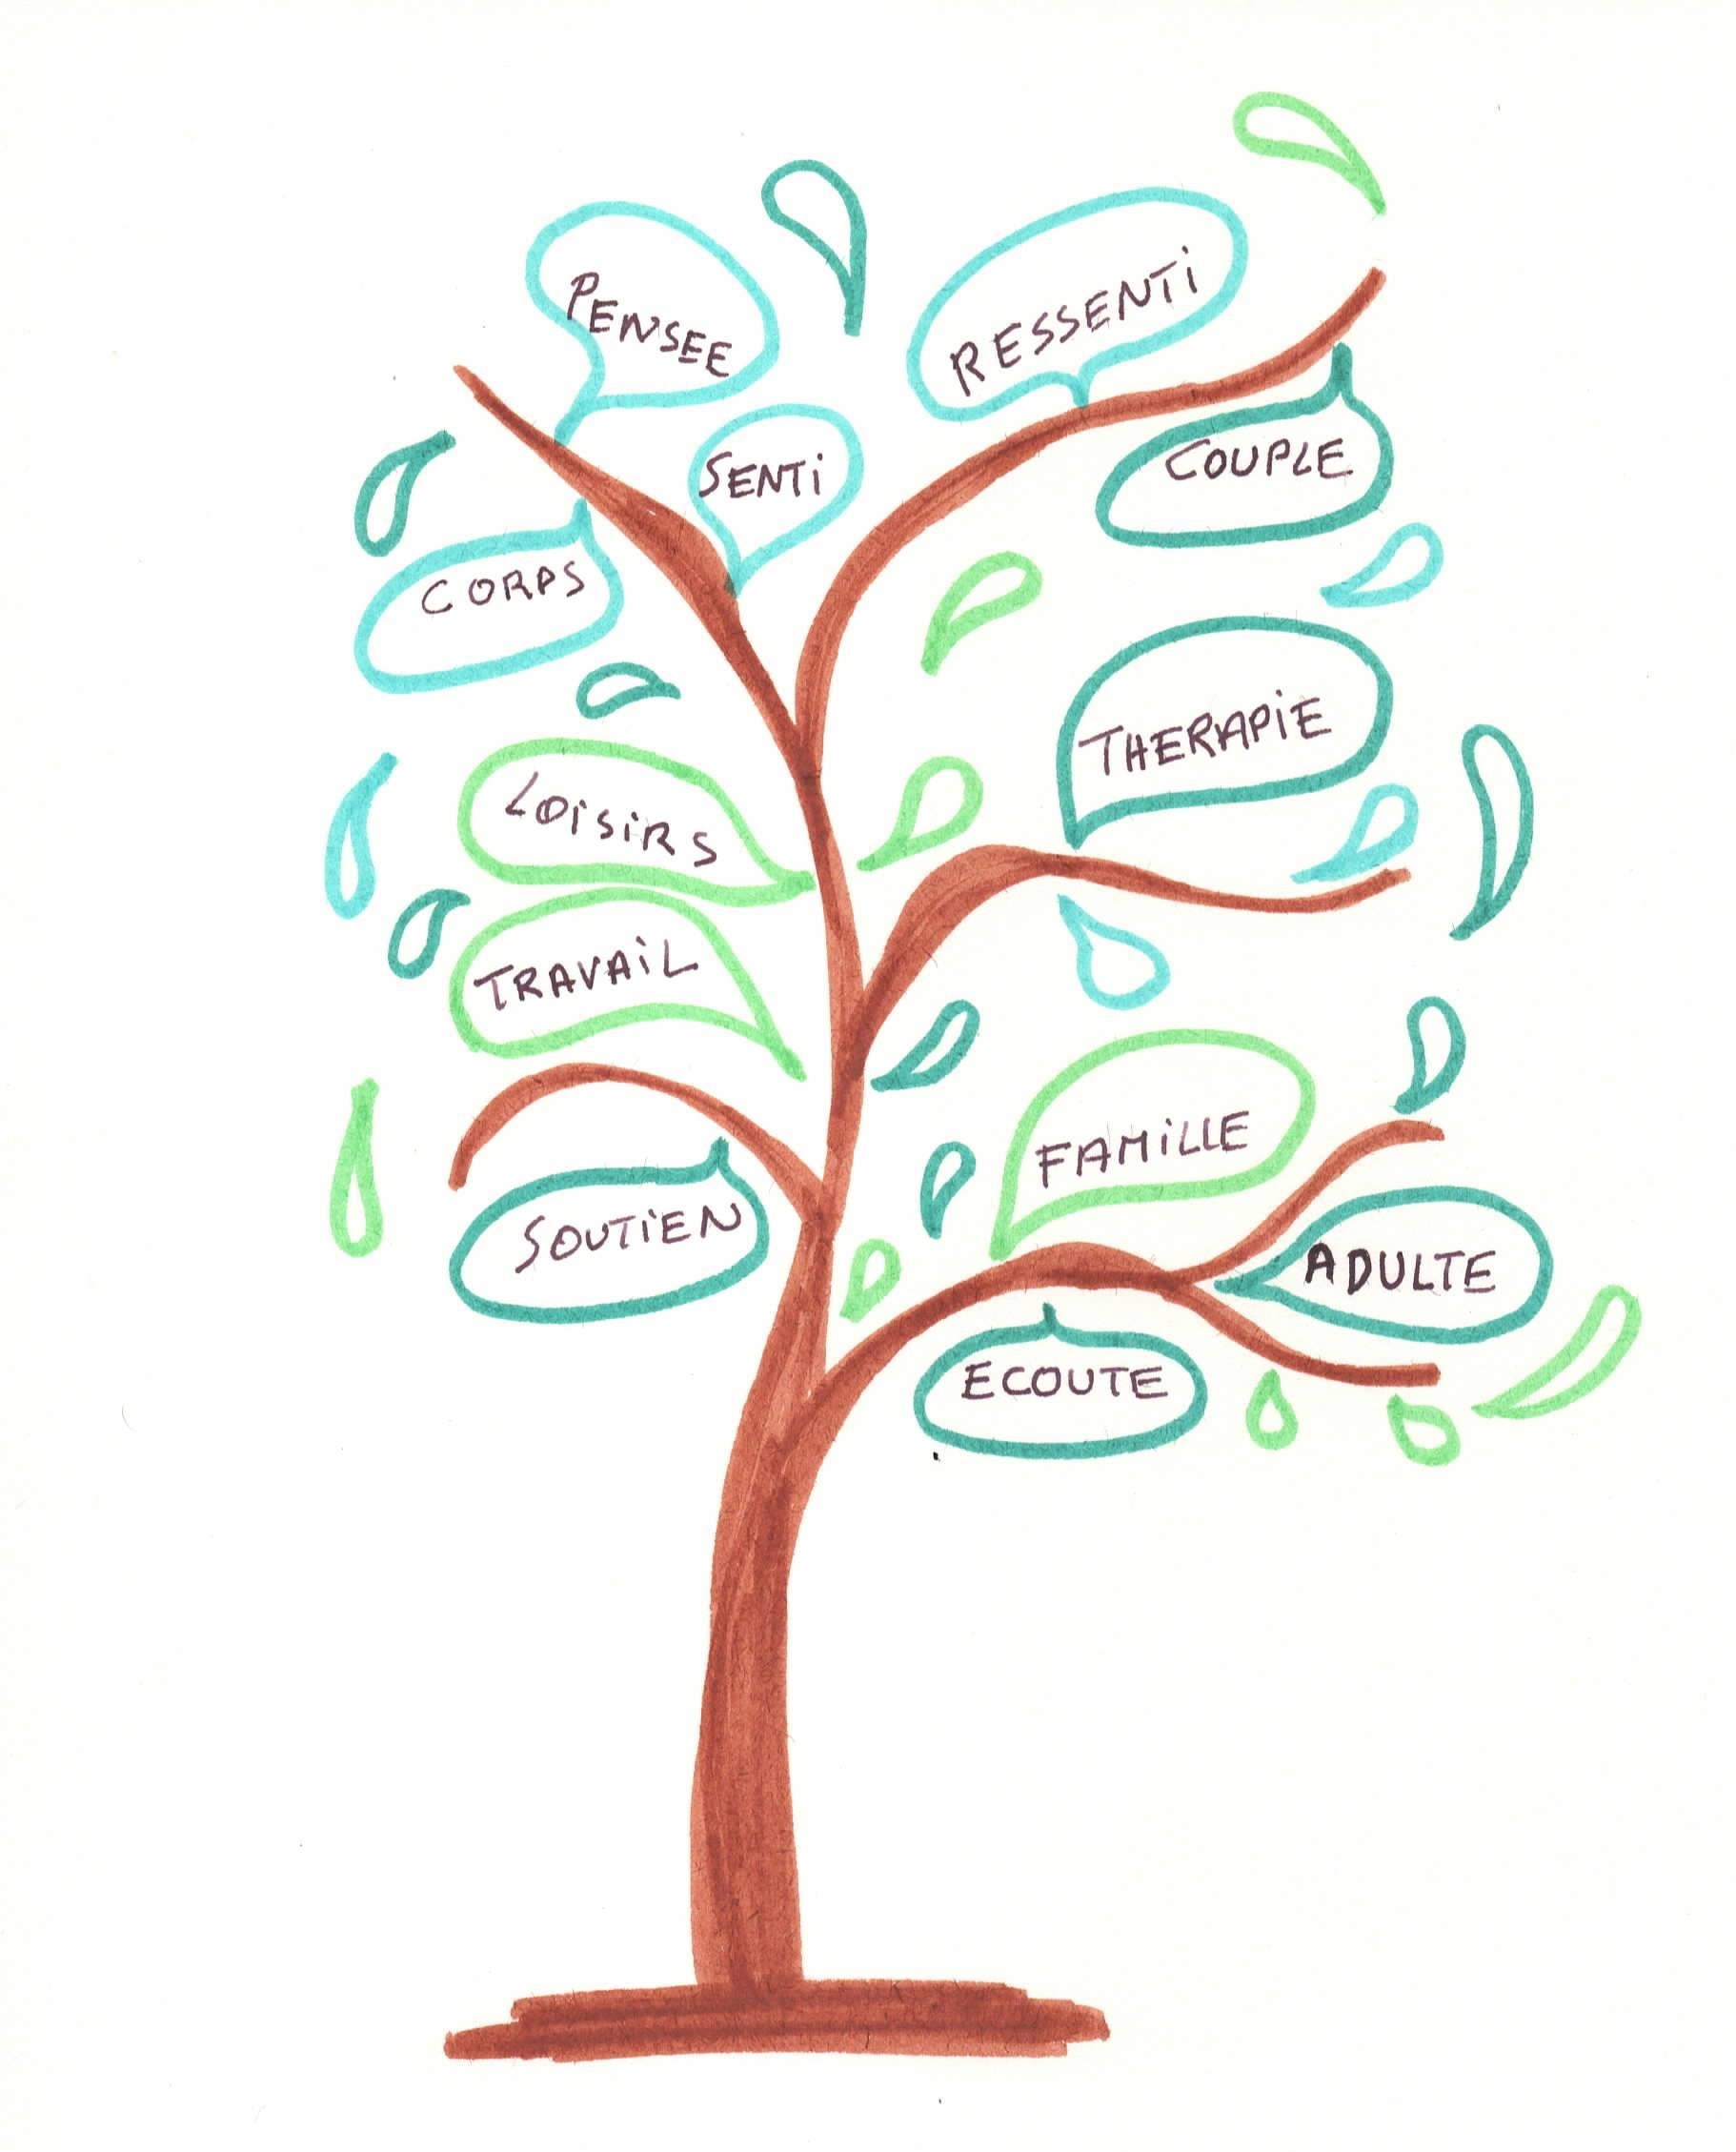 PENSEE
RESSENTi
SENTi
COUPLE
CORPS
THERAPiE
LOiSiRS
TRAVAiL
FAMiLLE
SOUTiEN
ADULTE
ECOUTE